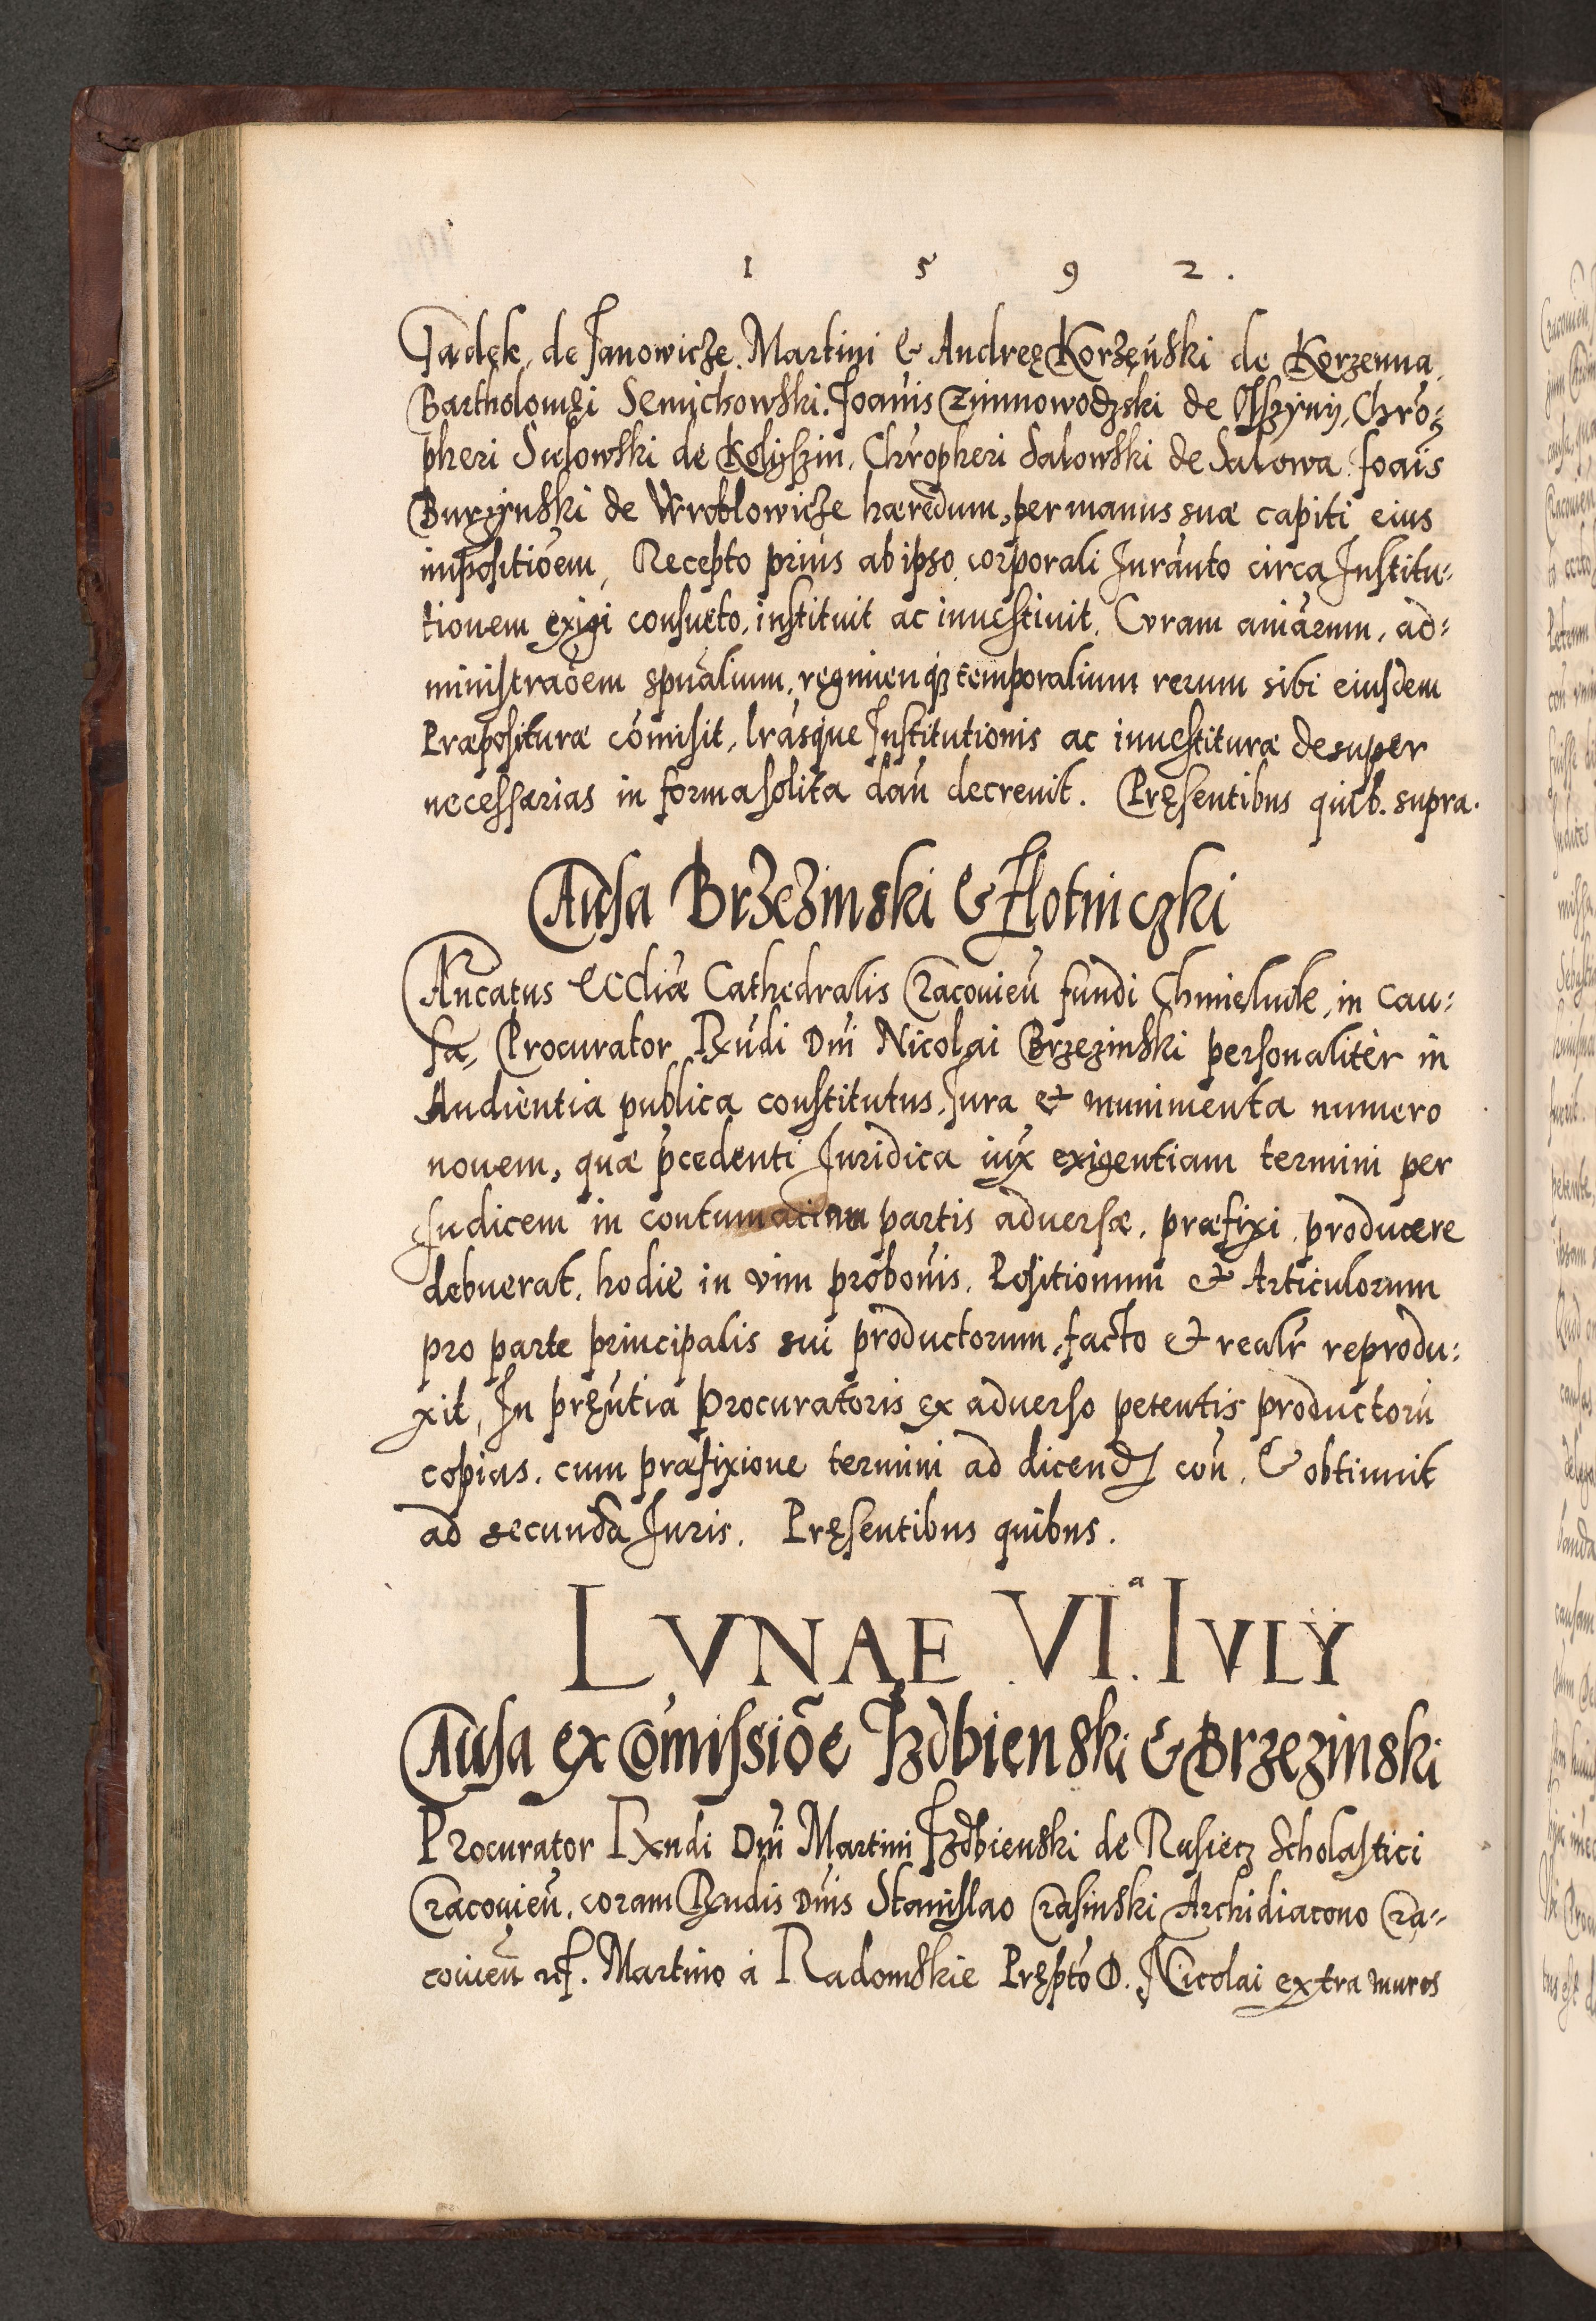 1 5 9 2.
Gadek, de Janowicze. Martini & Andreę Korzęński de Korzenna,
Bartholomęi Semichowski. Joanis Zimnowodzski de Olszyny, Chro=
pheri Sulowski de Kolyszin, Chropheri Salowski de Salowa Joais
Burzynski de Wroblowicze hæredum, per manus suæ capiti eius
impositioem, Recepto prius ab ipso corporali Juranto circa Institu=
tionem exigi consueto, instituit ac inuestiuit, Curam aniarum, ad=
ministraoem spualium, regimenq3 temporalium rerum sibi eiusdem
Præposituræ comisit, lrasque Institutionis ac inuestituræ desuper
necessarias in forma solita dan decreuit. Pręsentibus quib. supra.
Causa Brzezinski & Zlotniczki
Aduocatus Eccliæ Cathedralis Cracouien fundi Chmielude, in cau=
sa, Procurator Rndi Dni Nicolai Brzezinski personaliter in
Audientia publica constitutus, Jura et munimenta numero
nouem, quæ pcedenti Juridica iux exigentiam termini per
Judicem in contumaciam partis aduersæ, præfixi, producere
debuerat, hodie in vim probonis, Positionum et Articulorum
pro parte principalis sui productorum, facto et realr reprodu=
xit, In pręntia Procuratoris ex aduerso petentis productoru
copias, cum præfixione termini ad dicend con, & obtinuit
ad secunda Juris. Pręsentibus quibus.
LVNAE VI.a IVLY
Causa ex Comissiõe Izdbienski & Brzezinski
Procurator Rxndi Dni Martini Izdbienski de Rusiecz Scholastici
Cracouien, coram Rxndis Dnis Stanislao Crasinski Archidiacono Cra=
couien Martino á Radomskie Pręptó D. Nicolai extra muros